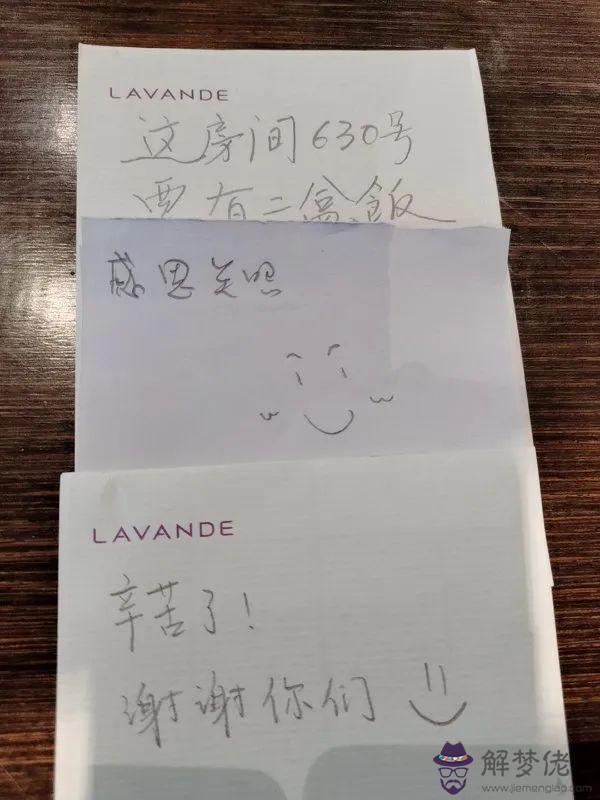 LAVANDE
这房间630号
要有二盒飯
感恩关照
LAVANDE
辛苦了!
谢谢你们
解梦佬
www.jiemenglao.com